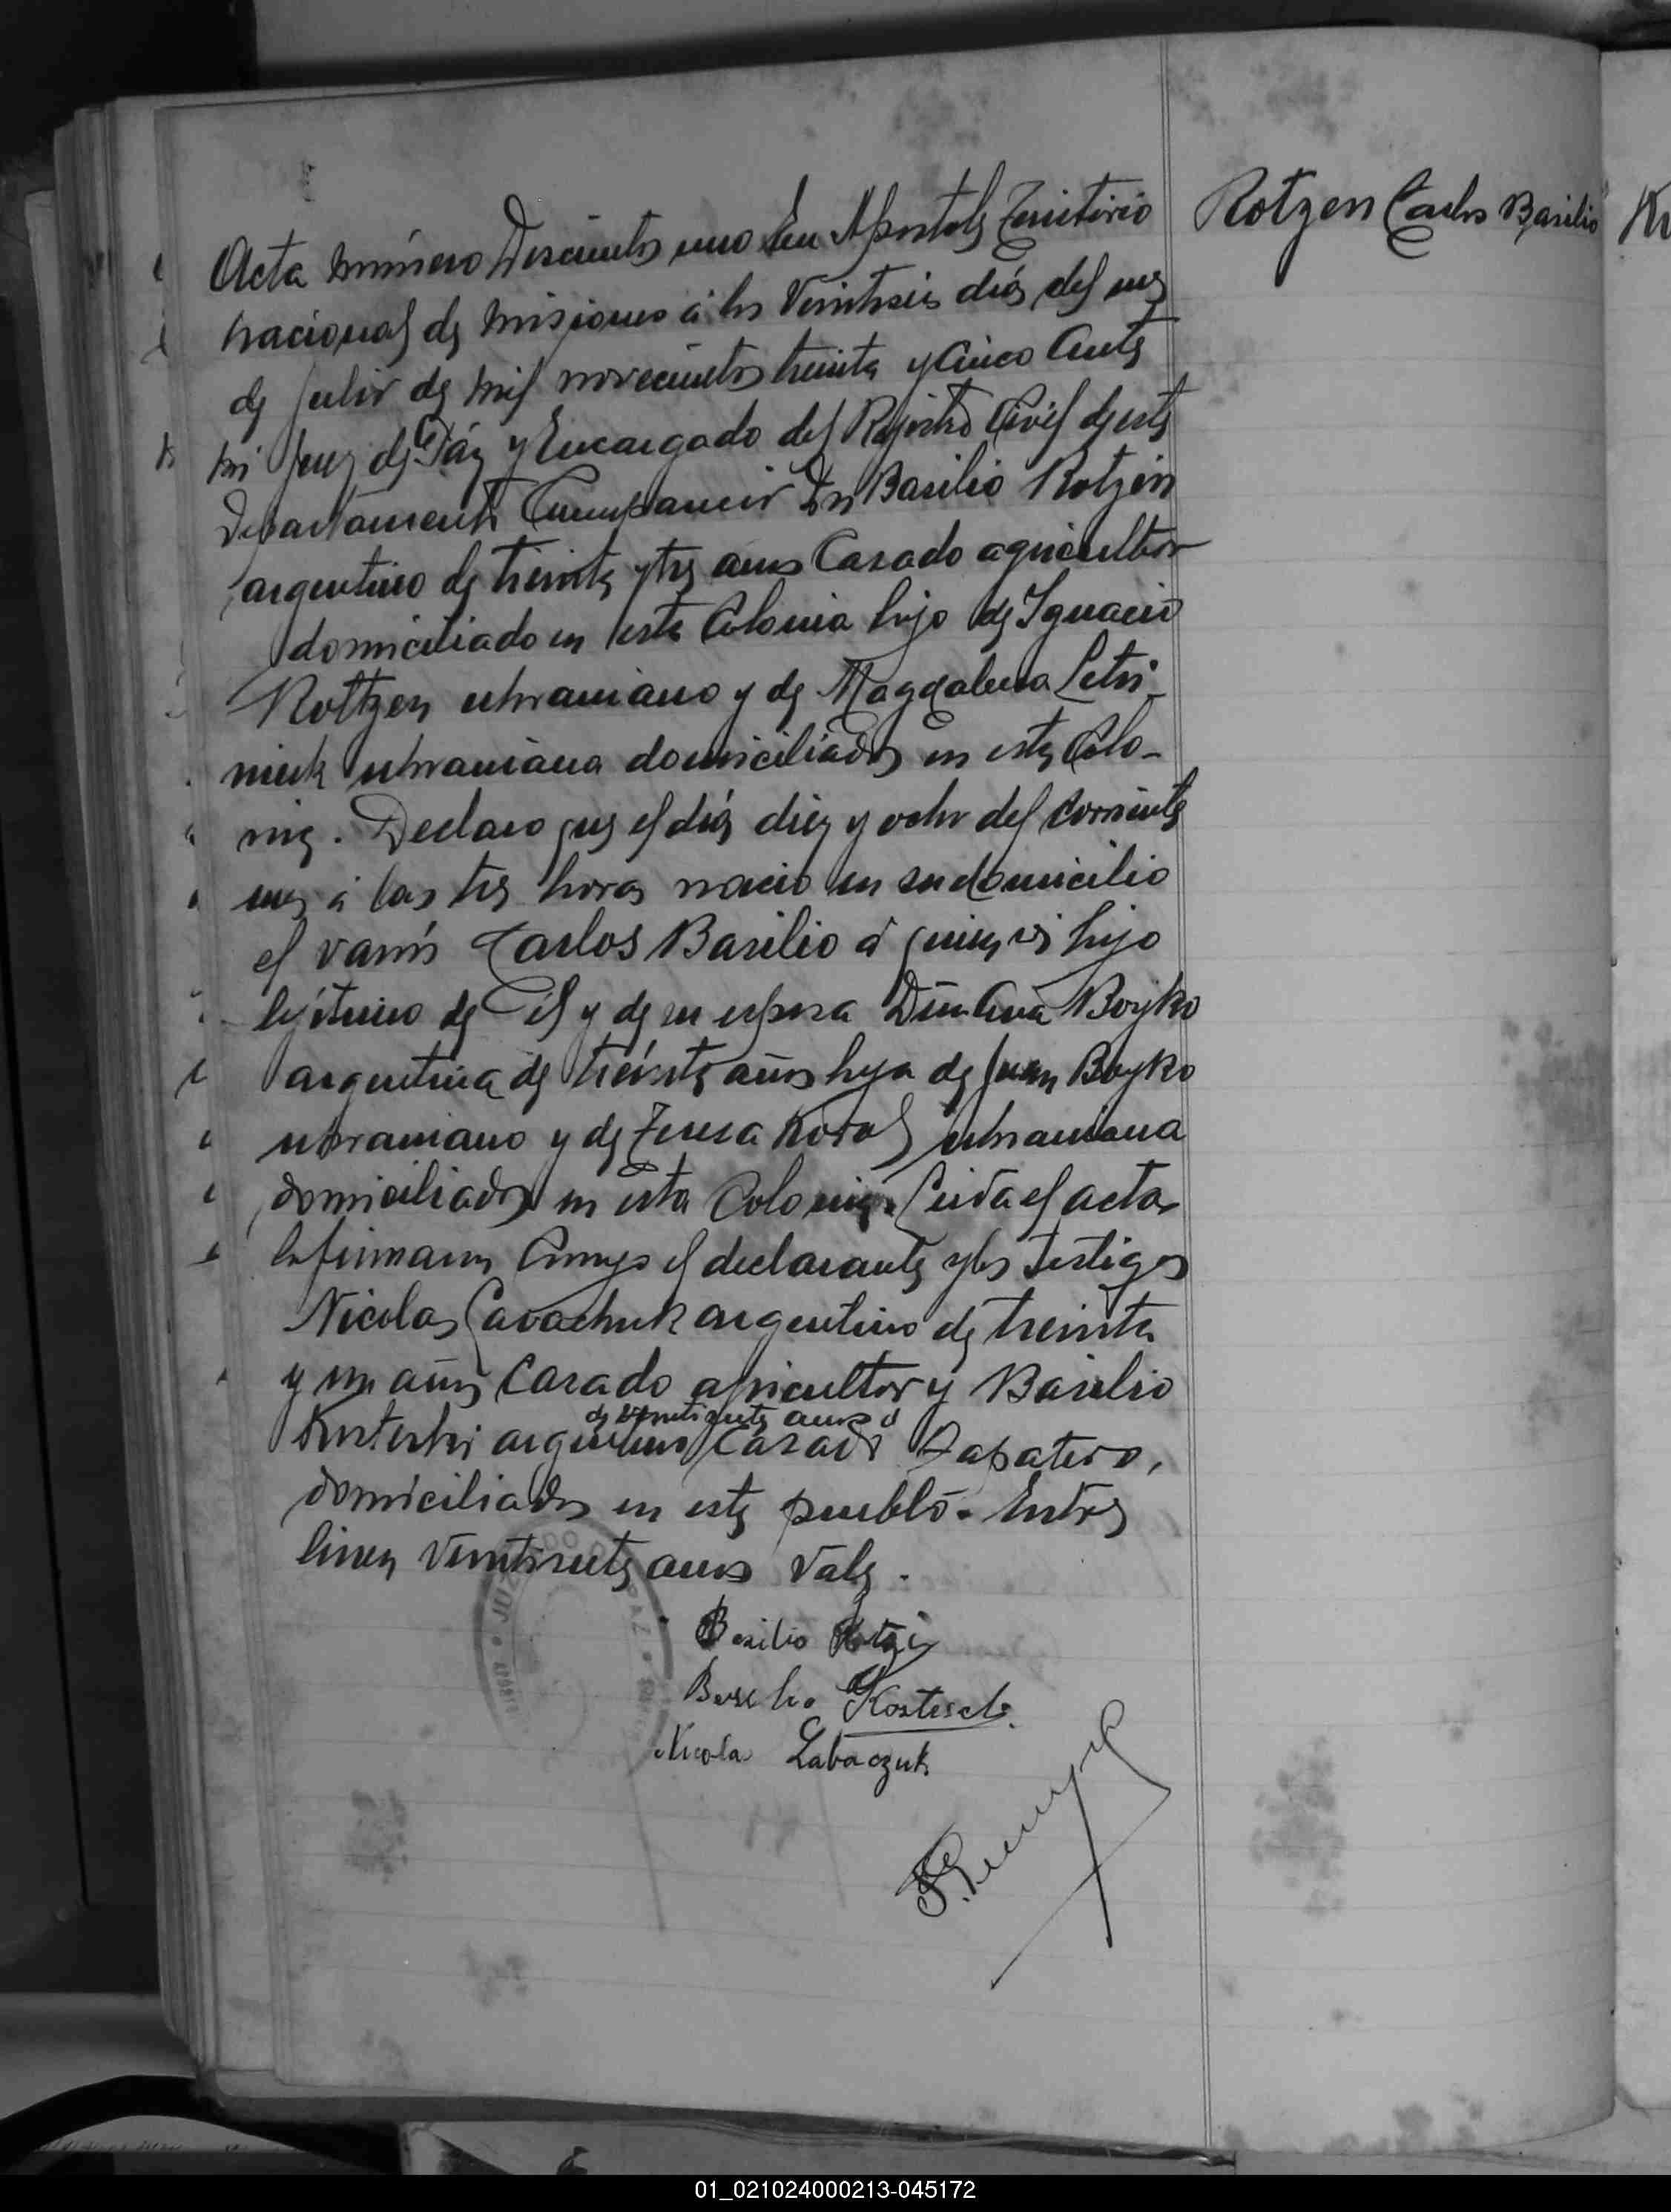 Rotzen Carlos Basilio
Acta número Doscientos uno En Apostoles Territorio
nacional de Misiones á los Veintiseis días del mes
de Julio de mil novecientos treinta y cinco Ante
mi Juez de Páz y Encargado del Rejistro Civil de este
Departamento Compareció Dn Basilio Rotzen
argentino de treinta y tres años Casado agricultor
domiciliado en esta Colonia hijo de Ignacio
Rottzen ukraniano y de Magdalena Letvi-
niuk ukraniana domiciliados en esta Colo-
nia. Declaro que el día diez y ocho del corriente
mes á las tres horas nació en su domicilio
el varón Carlos Basilio á quien es hijo
lejítimo de él y de su esposa Dña Ana Boyko
argentina de treinta años hija de Juan Boyko
ukraniano y de Teresa Korol ukraniana
domiciliados en esta Colonia. Leida el acta
la firmaron Conmigo el declarante y los testigos
Nicolas Lavachuk argentino de treinta
y un años Casado agricultor y Basilio
de veintisiete años
Kosteski argentino Casado Zapatero,
domiciliados en este pueblo. Entre
linea Veintisiete años Vale.
JUZGADO DE PAZ
Basilio Rotze
Basilio Kosteschi
Nicola Labaczuk
01_021024000213-045172